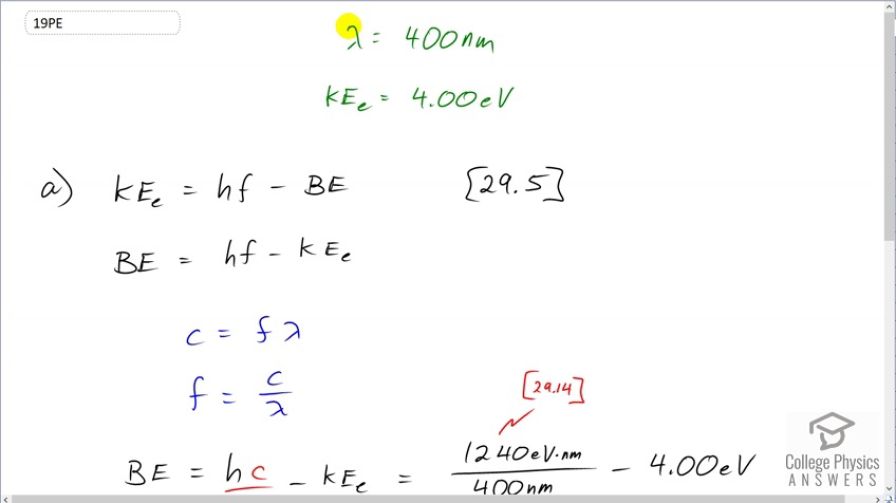 19PE
λ = 400nm
KEₑ = 4.00eV
a) KEₑ = hf - BE [29.5]
BE = hf - KEₑ
c = fλ
f = c/λ
[29.14]
BE = hc - KEₑ = 1240eV·nm/400nm - 4.00eV
College Physics
ANSWERS